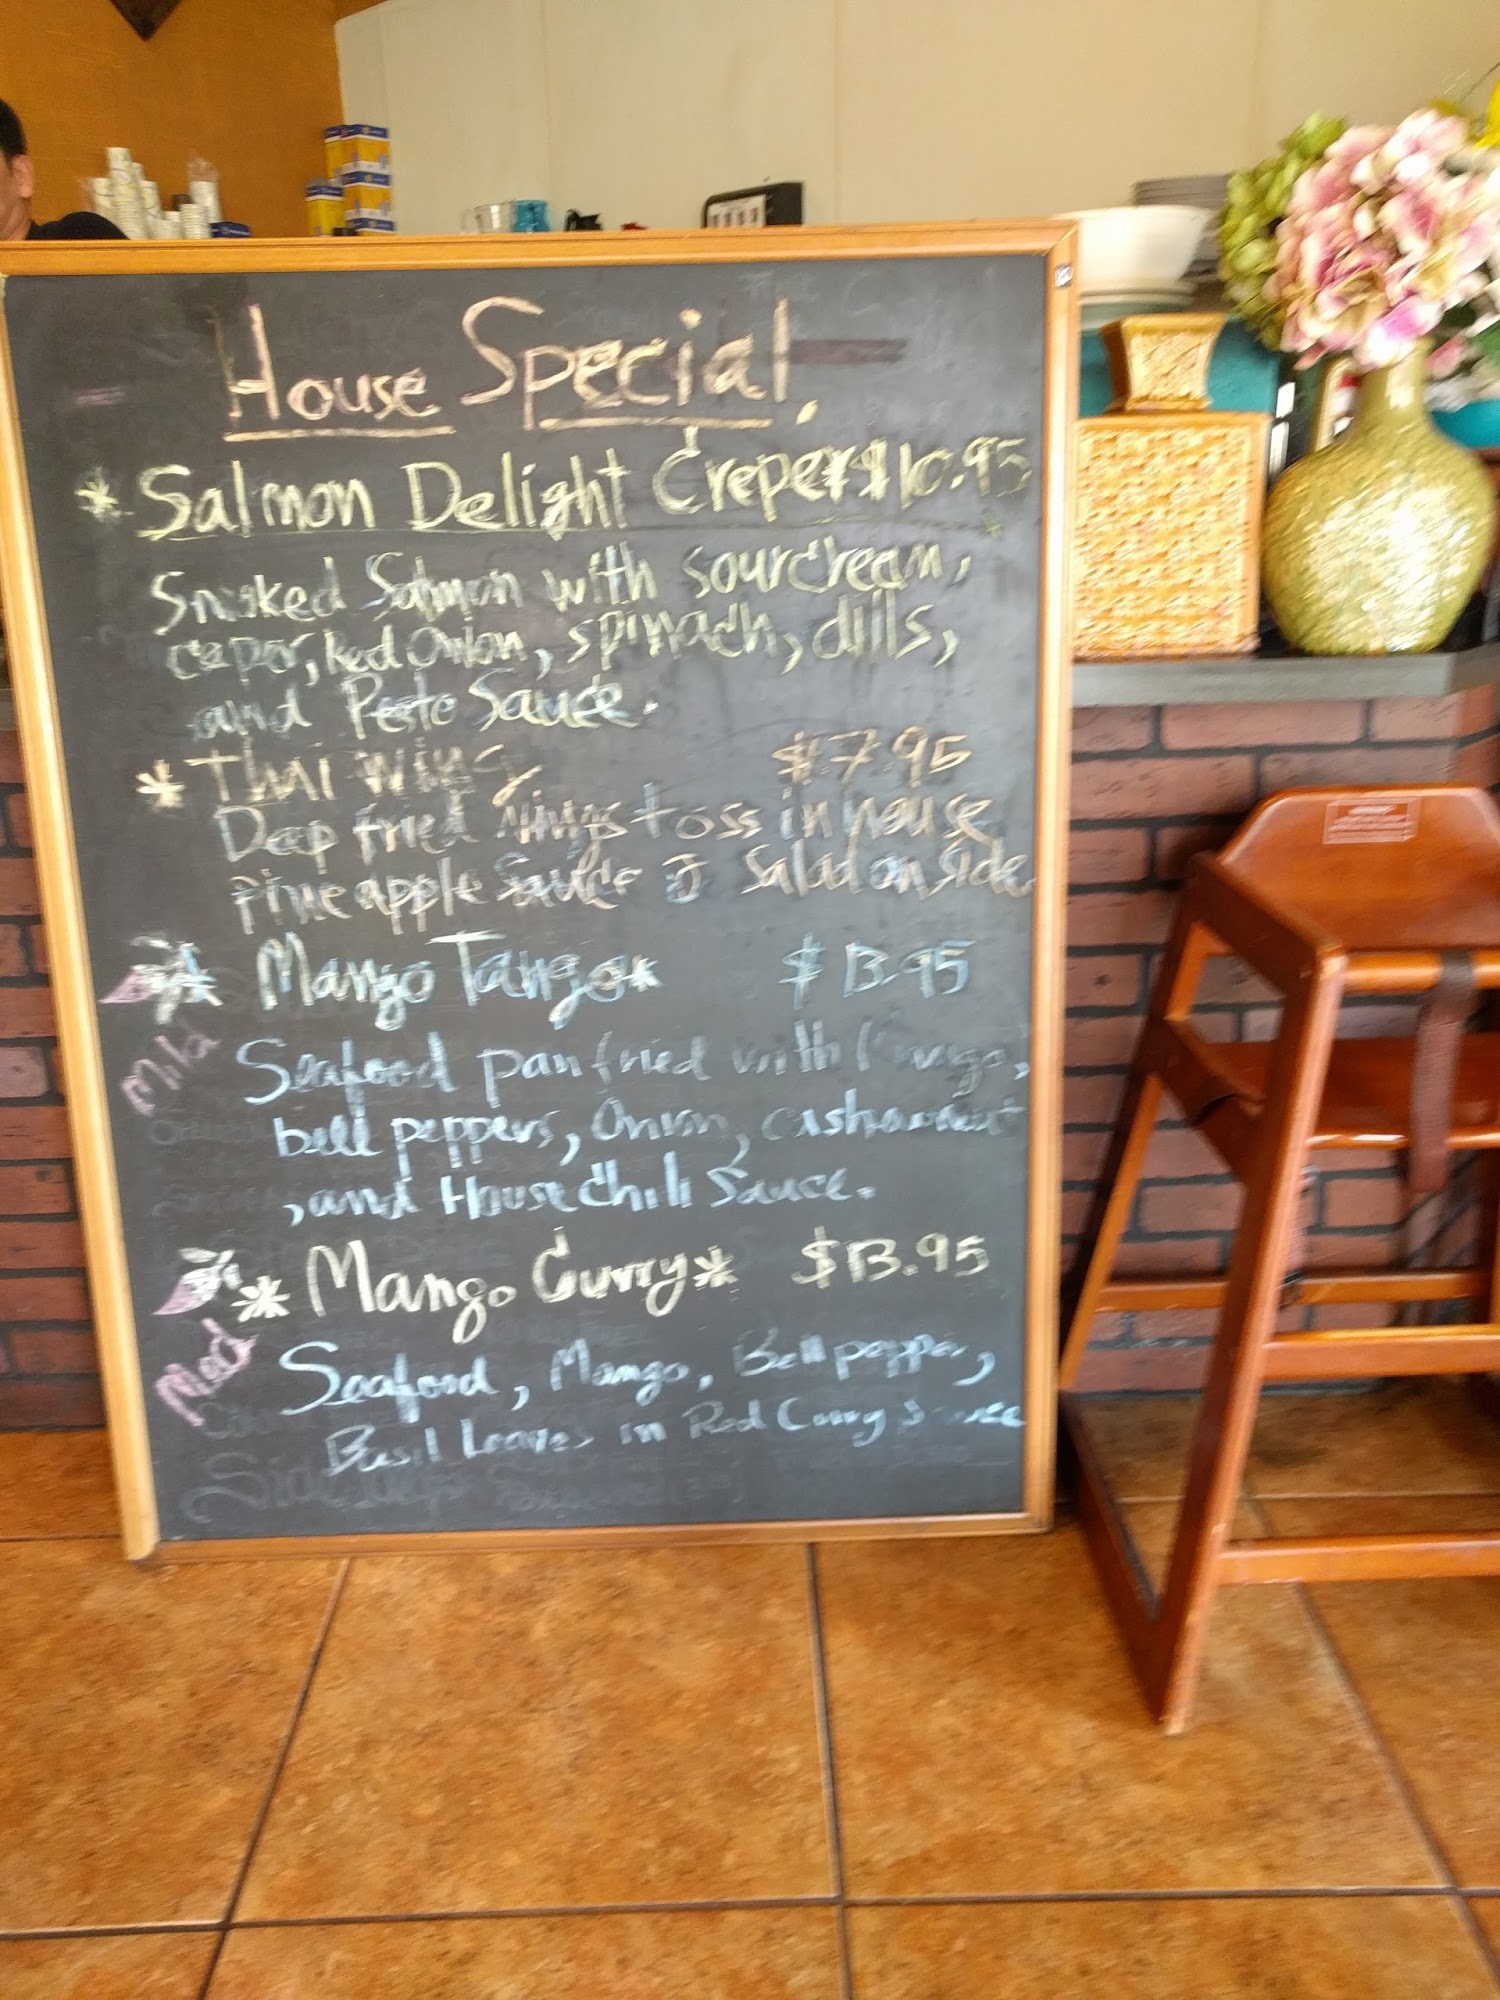 House Special.
* Salmon Delight Crepe * $10.95
Smoked Salmon with sourcream,
caper, Red Onion, spinach, dills,
and Pesto Sauce.
* Thai Wing $7.95
Deep fried wings toss in house
Pineapple Sauce & Salad on side
* Mango Tango * $13.95
Mild
Seafood pan fried with Mango,
bell peppers, Onion, cashewnut
, and House Chili Sauce.
* Mango Curry * $13.95
Med
Seafood, Mango, Bell pepper,
Basil Leaves in Red Curry Sauce